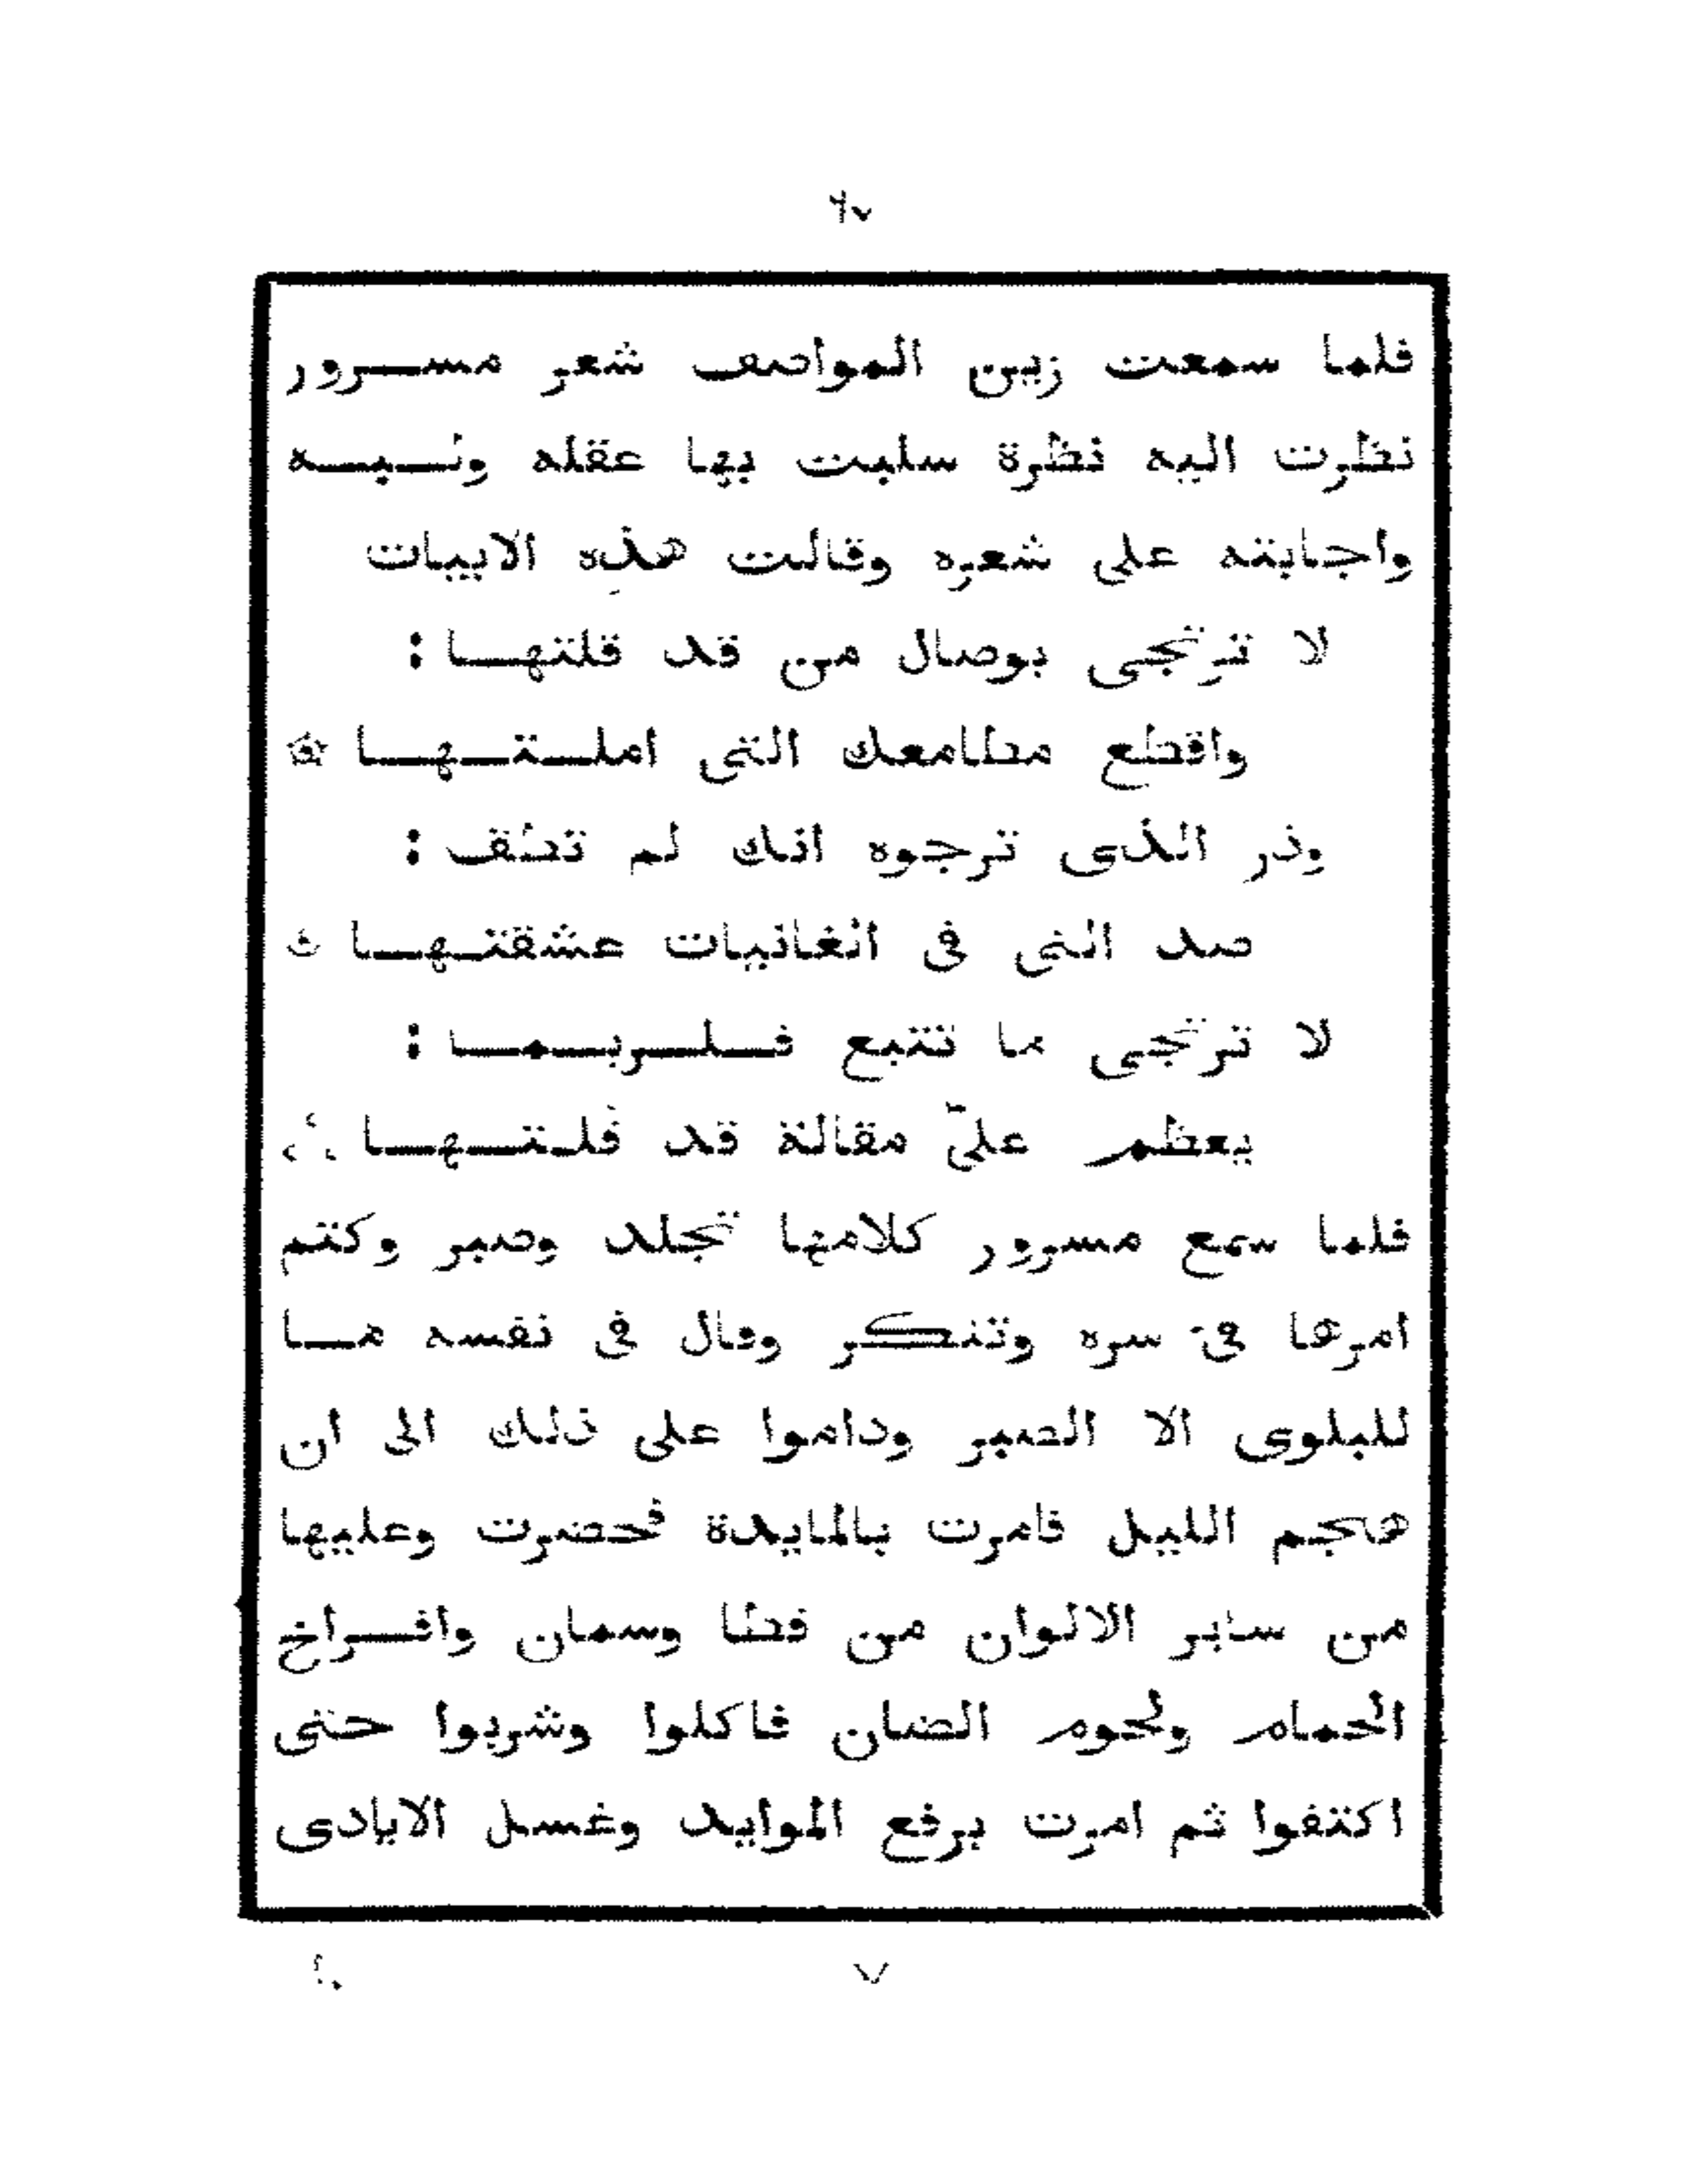 ٦٧
فلما سمعت زين المواصف شعر مسرور
نظرت اليه نظرة سلبت بها عقله ولـبـه
واجابته على شعره وقالت هذه الابيات
لا ترتجى بوصال من قد قلتها :
واقطع مطامعك التى املتها
وذر الذى ترجوه انك لم تطق :
صد التى فى الغانيات عشقتها
لا ترتجى ما تتبع فلربما :
يعظم علىّ مقالة قد قلتها
فلما سمع مسرور كلامها تجلد وصبر وكتم
امرها فى سره وتنكر وقال فى نفسه ما
للبلوى الا الصبر وداموا على ذلك الى ان
هجم الليل فامرت بالمايدة فحضرت وعليها
من ساير الالوان من قطا وسمان وافراخ
الحمام ولحوم الضان فاكلوا وشربوا حتى
اكتفوا ثم امرت برفع الموايد وغسل الايادى
٧